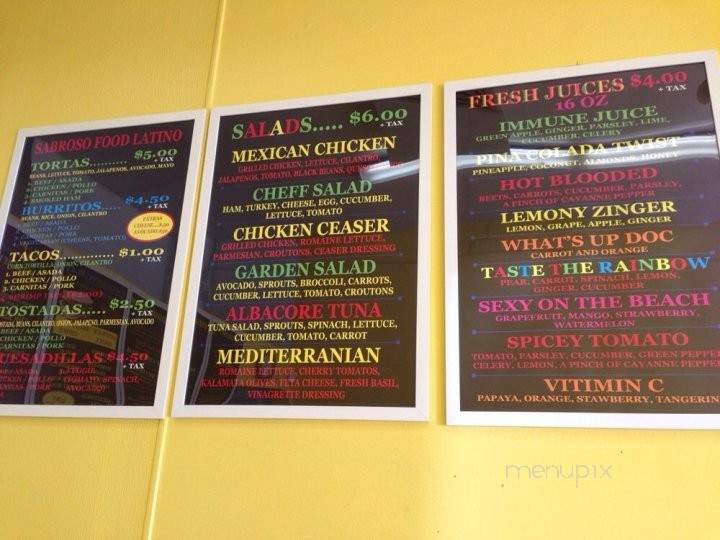 SABROSO FOOD LATINO
TORTAS.......... $5.00
+ TAX
BEANS, LETTUCE, TOMATO, JALAPENOS, AVOCADO, MAYO
1. BEEF / ASADA
2. CHICKEN / POLLO
3. CARNITAS / PORK
4. SMOKED HAM
BURRITOS....... $4.50
+ TAX
BEANS, RICE, ONION, CILANTRO
BEEF / ASADA
CHICKEN / POLLO
/ PORK
(CHEESE, TOMATO)
EXTRAS
CHEESE
AVOCADO
TACOS.............. $1.00
+ TAX
CORN TORTILLA, ONION, CILANTRO
1. BEEF / ASADA
2. CHICKEN / POLLO
3. CARNITAS / PORK
TOSTADAS....... $2.50
+ TAX
TOSTADA, BEANS, CILANTRO, ONION, JALAPENO, PARMESIAN, AVOCADO
BEEF / ASADA
CHICKEN / POLLO
CARNITAS / PORK
UESADILLAS $4.50
+ TAX
BEEF / ASADA
CHICKEN / POLLO
/ PORK
VEGGIE
(TOMATO, SPINACH,
AVOCADO)
SALADS..... $6.00
+ TAX
MEXICAN CHICKEN
GRILLED CHICKEN, LETTUCE, CILANTRO,
JALAPENOS, TOMATO, BLACK BEANS,
CHEFF SALAD
HAM, TURKEY, CHEESE, EGG, CUCUMBER,
LETTUCE, TOMATO
CHICKEN CEASER
GRILLED CHICKEN, ROMAINE LETTUCE,
PARMESIAN, CROUTONS, CEASER DRESSING
GARDEN SALAD
AVOCADO, SPROUTS, BROCCOLI, CARROTS,
CUCUMBER, LETTUCE, TOMATO, CROUTONS
ALBACORE TUNA
TUNA SALAD, SPROUTS, SPINACH, LETTUCE,
CUCUMBER, TOMATO, CARROT
MEDITERRANIAN
ROMAINE LETTUCE, CHERRY TOMATOS,
KALAMATA OLIVES, FETA CHEESE, FRESH BASIL,
VINAGRETTE DRESSING
FRESH JUICES $4.00
+ TAX
16 OZ
IMMUNE JUICE
GREEN APPLE, GINGER, PARSLEY, LIME,
CUCUMBER, CELERY
PINA COLADA TWIST
PINEAPPLE, COCONUT, ALMONDS, HONEY
HOT BLOODED
BEETS, CARROTS, CUCUMBER, PARSLEY,
A PINCH OF CAYANNE PEPPER
LEMONY ZINGER
LEMON, GRAPE, APPLE, GINGER
WHAT'S UP DOC
CARROT AND ORANGE
TASTE THE RAINBOW
PEAR, CARROT, SPINACH, LEMON,
GINGER, CUCUMBER
SEXY ON THE BEACH
GRAPEFRUIT, MANGO, STRAWBERRY,
WATERMELON
SPICEY TOMATO
TOMATO, PARSLEY, CUCUMBER, GREEN PEPPER
CELERY, LEMON, A PINCH OF CAYANNE PEPPER
VITIMIN C
PAPAYA, ORANGE, STAWBERRY, TANGERIN
menupix